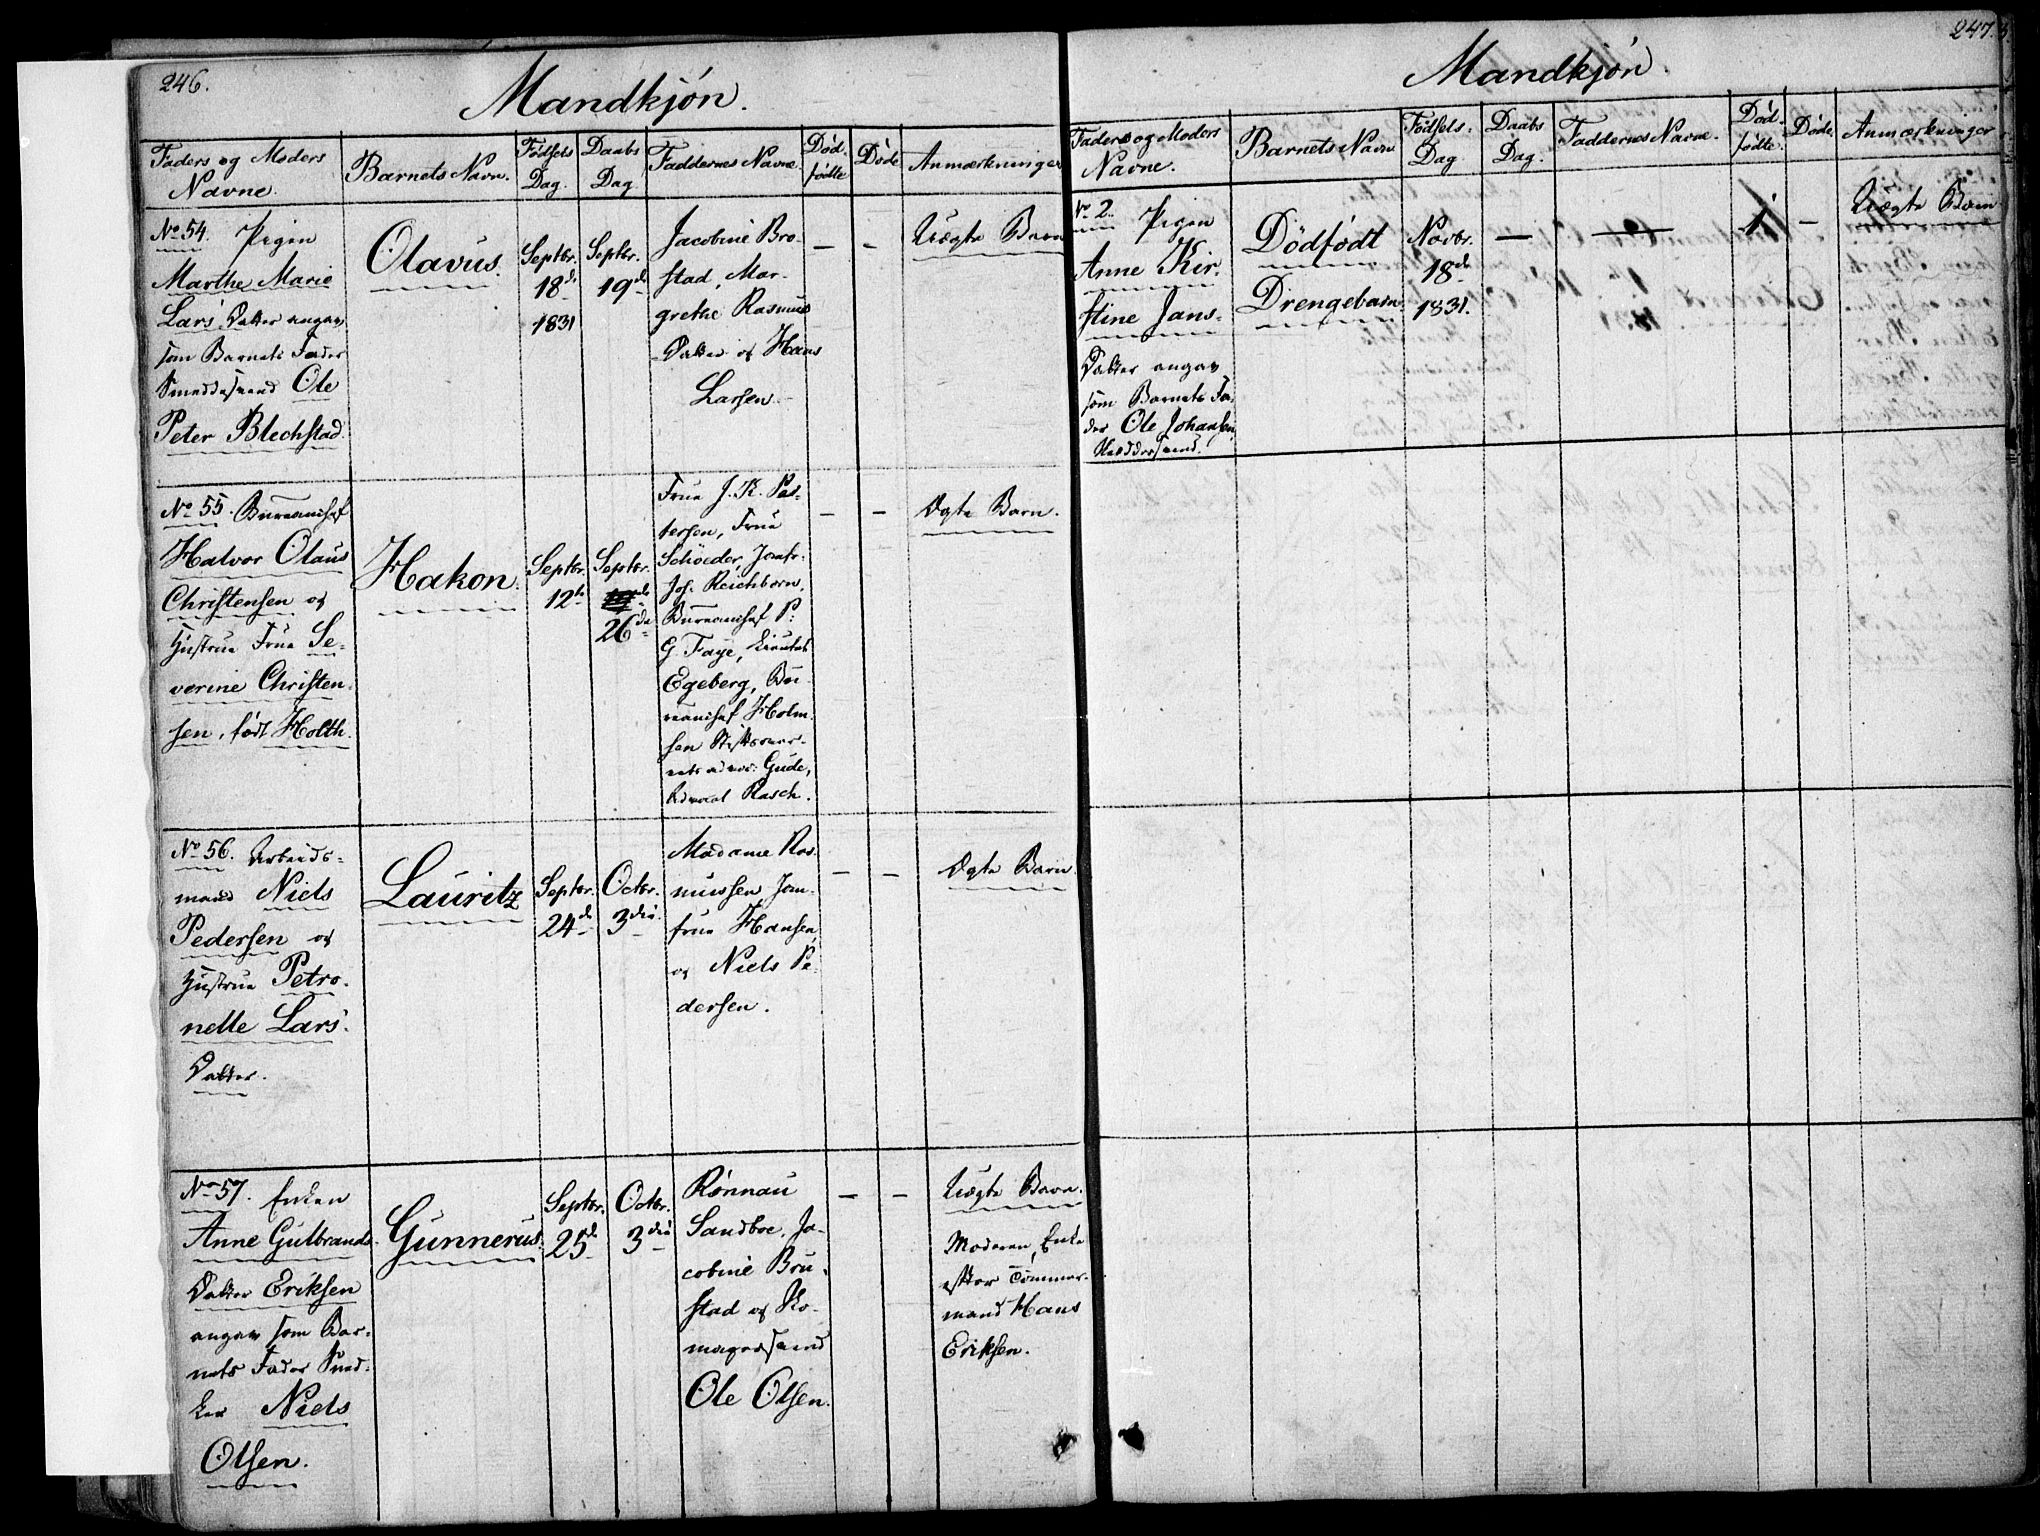 246.
Mandkjön.
Faders og Moders
Navne.
Barnets Navn.
Födsels
Dag.
Daabs
Dag.
Faddernes Navne.
Död-
födte
Döde
Anmærkninger
No 54. Pigen
Marthe Marie
Lars Datter angav
som Barnets Fader
Smeddesvend Ole
Peter Blechstad.
Olavus.
Septbr.
18d
1831
Septbr.
19d
Jacobine Bro-
stad, Mar-
grethe Rasmus
Datter og Hans
Larsen.
—
—
Uægte Barn
No 55. Bureauchef
Halvor Olaus
Christensen og
Hustrue Frue Se-
verine Christen-
sen, född Holth.
Hakon.
Septbr.
12te
Septbr.
26de
Frue J. K. Pet-
tersen, Frue
Schöeder, Jomfr.
Joh. Reichborn,
Bureauchef P:
G. Faye, Lieutnt
Egeberg, Bu-
reauchef Holm-
sen Stiftsover-
rets advoc: Gude,
Advocat Rasch.
—
—
Ægte Barn.
No 56. Arbeids-
mand Niels
Pedersen og
Hustrue Petro-
nelle Lars-
Datter.
Lauritz
Septbr.
24d
Octbr.
3die
Madame Ras-
mussen Jom-
frue Hansen,
og Niels Pe-
dersen.
—
—
Ægte Barn.
No 57. Enken
Anne Gulbrands-
Datter Eriksen
angav som Bar-
nets Fader Sned-
ker Niels
Olsen.
Gunnerus.
Septbr.
25d
Octbr.
3die
Rönnau
Sandboe, Ja-
cobine Bru-
stad og Sko-
magersvend
Ole Olsen.
—
—
Uægte Barn.
Moderen, Enke
efter Tömmer-
mand Hans
Eriksen.
247.
Mandkjön.
Faders og Moders
Navne.
Barnets Navn
Födsels-
Dag
Daabs
Dag.
Faddernes Navne.
Död-
födte.
Döde.
Anmærkninger
No 2. Pigen
Anne Kir-
stine Jans-
Datter angav
som Barnets Fa-
der Ole Johansen,
Dödfödt
Drengebarn.
Novbr.
18de
1831.
—
—
1
—
Uægte Barn